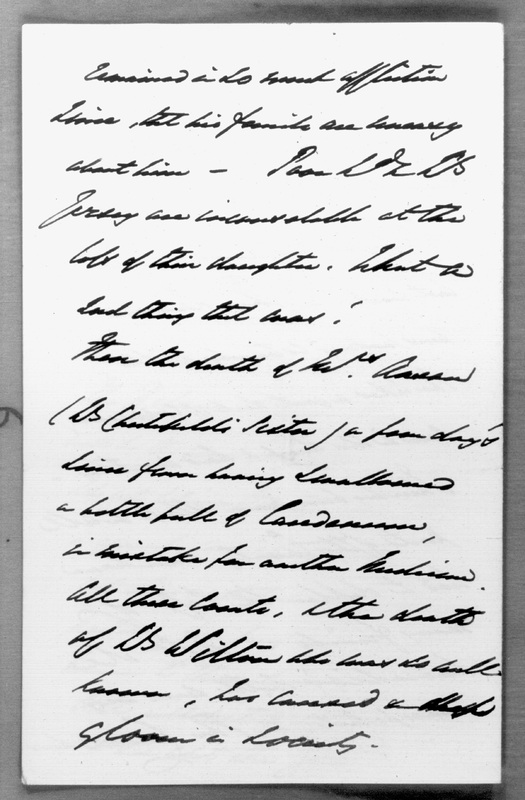 remained in so much affliction
since, that his family are uneasy
about him – Poor Ld & Ly
Jersey are inconsolable at the
loss of their daughter. What a
sad thing that was!
Then the death of Edwd.
(Ly Chesterfield's sister) a few day's
since from having swallowed
a bottle full of Laudanum,
in mistake for another Medicine.
All these Events, & the death
of Ld Wilton who was so well
known, has caused a deep
gloom in Society.